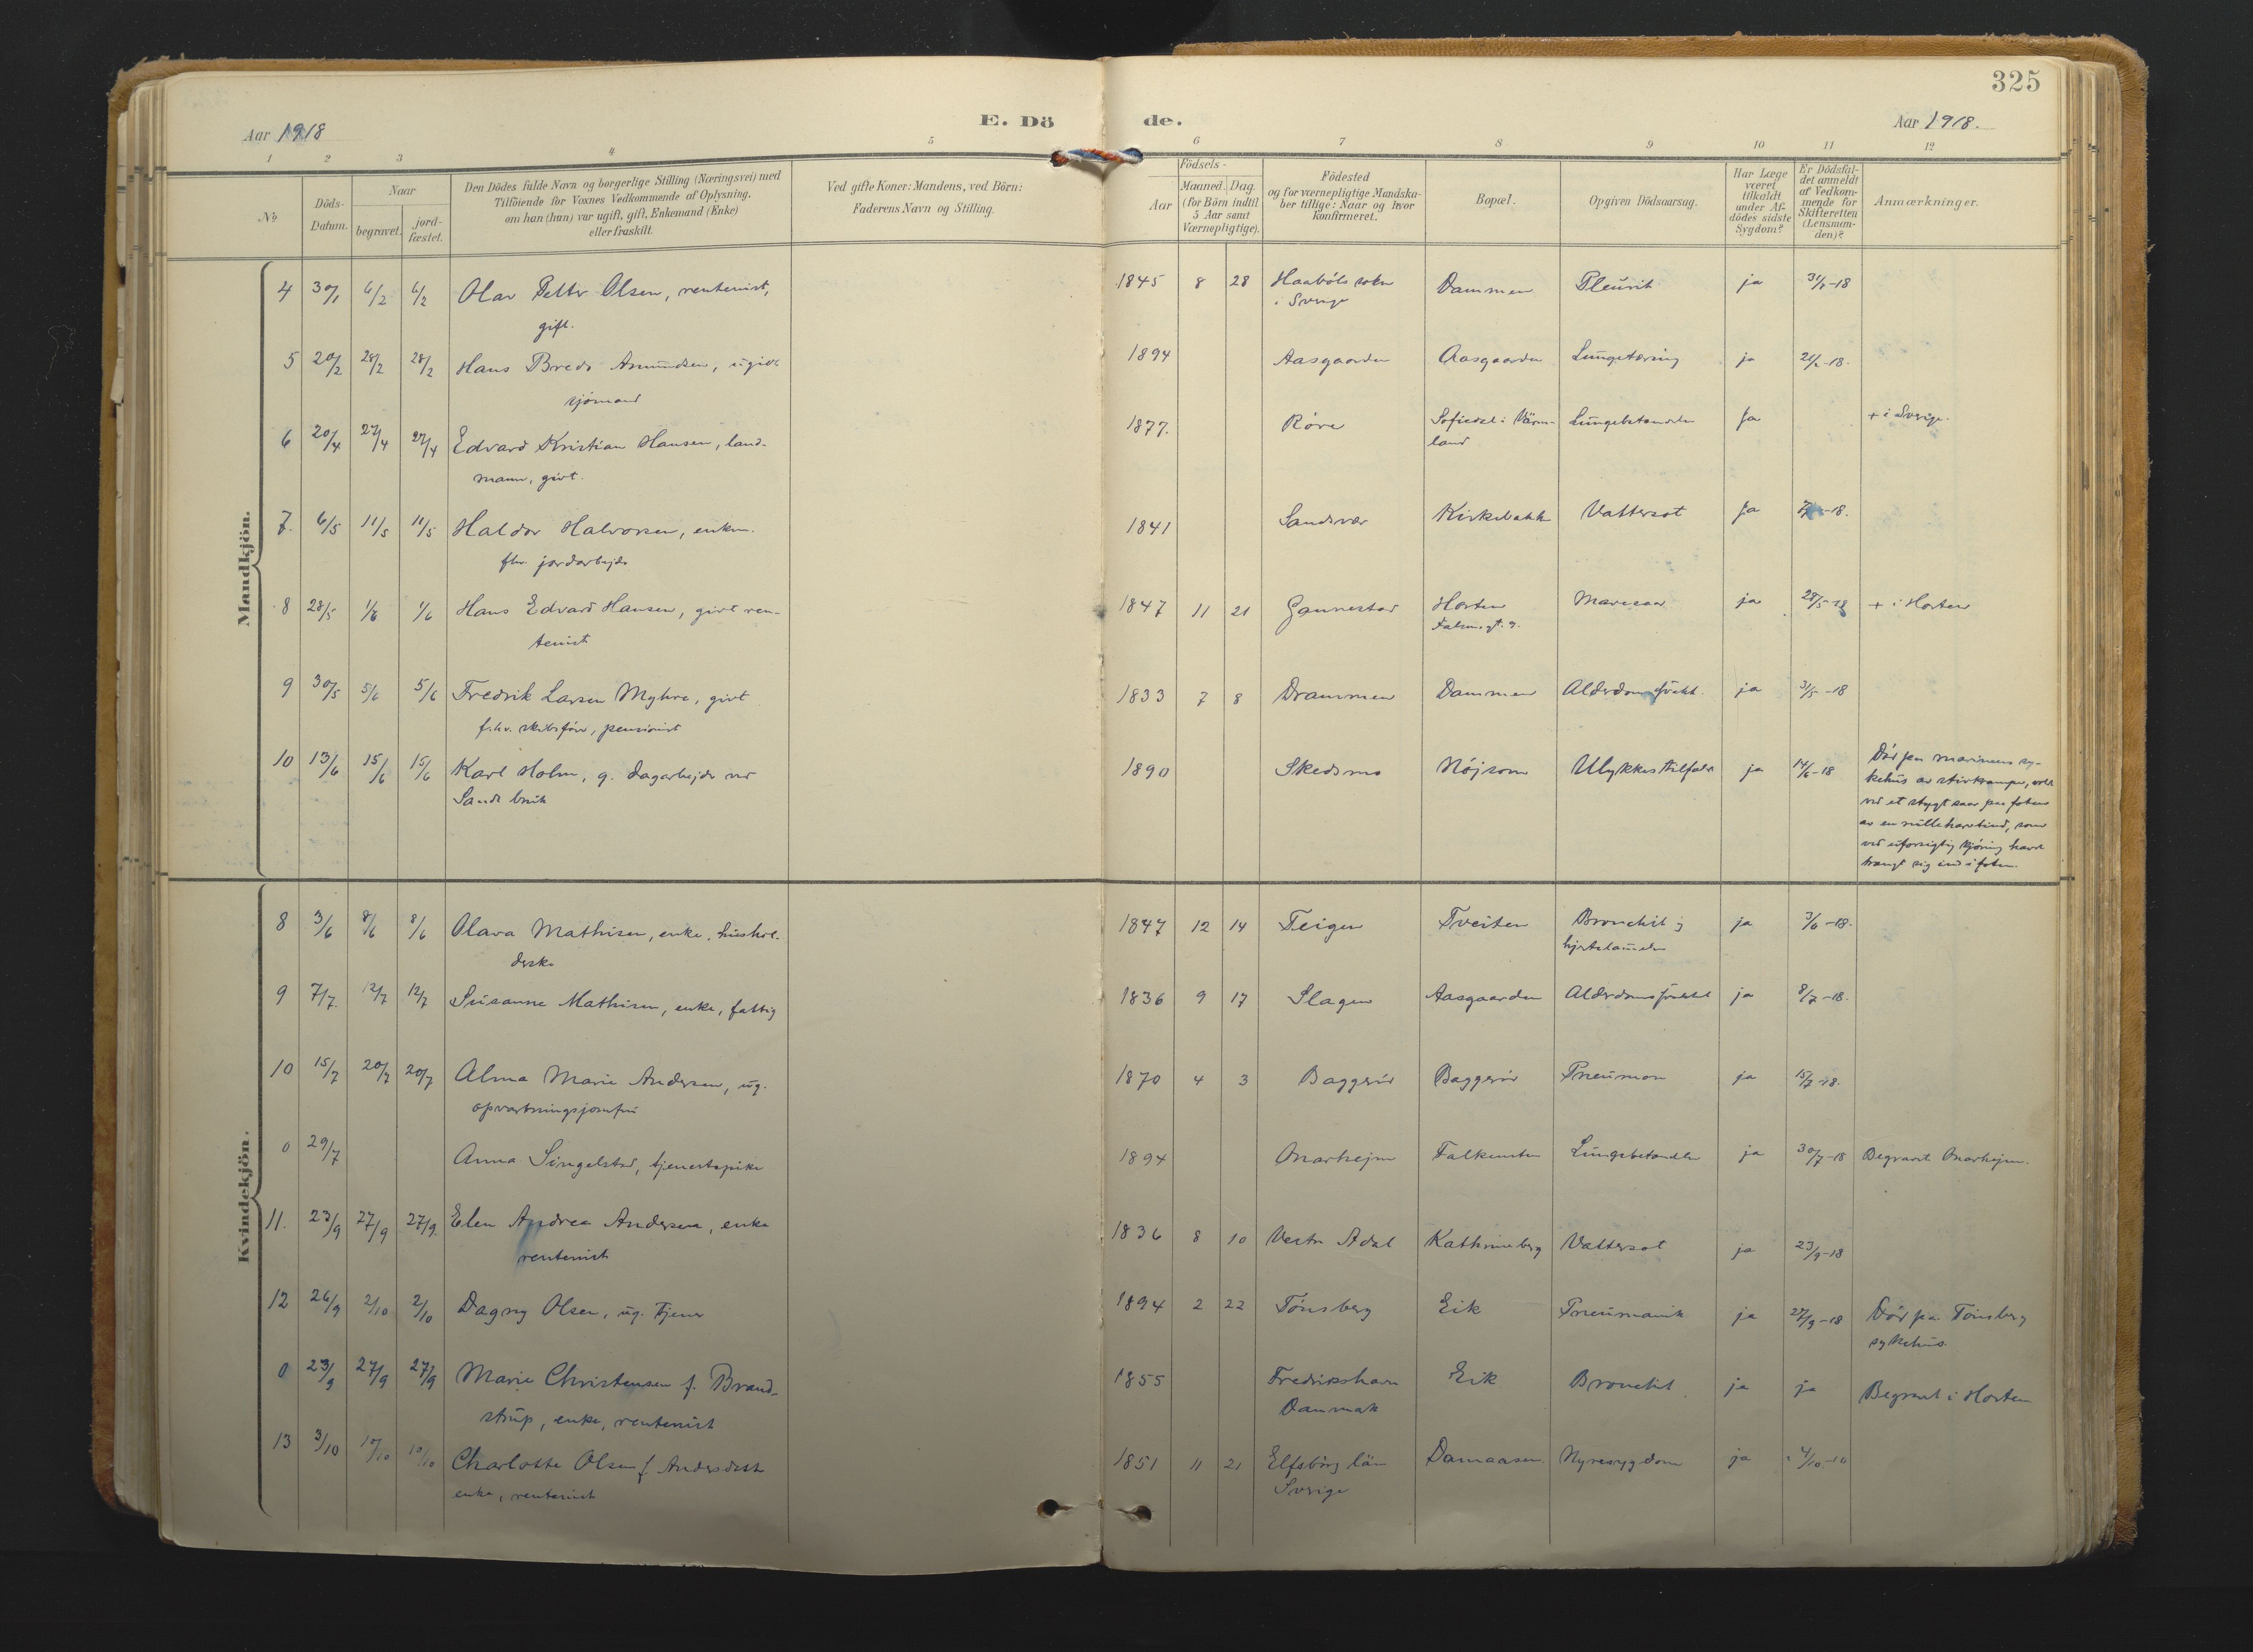 325
E. Dö de.
Aar 1918
Aar 1918.
1 2 3 4 5 6 7 8 9 10 11 12
No
Döds-
Datum.
Naar
begravet.
jord-
fæstet.
Den Dödes fulde Navn og borgerlige Stilling (Næringsvei) med
Tilföiende for Voxnes Vedkommende af Oplysning.
om han (hun) var ugift, gift, Enkemand (Enke)
eller fraskilt.
Ved gifte Koner: Mandens, ved Börn:
Faderens Navn og Stilling.
Födsels-
Aar
Maaned. Dag.
(for Börn indtil
5 Aar samt
Værnepligtige).
Födested
og for værnepligtige Mandska-
ber tillige: Naar og hvor
konfirmeret.
Bopæl.
Opgiven Dödsaarsag.
Har Læge
været
tilkaldt
under Af-
dödes sidste
Sygdom?
Er Dödsfal-
det anmeldt
af Vedkom-
mende for
Skifteretten
(Lensman-
den)?
Anmærkninger.
Mandkjön.
4 30/1 6/2 6/2 Olav Petter Olsen, rentenist, 1845 8 28 Haaböls sokn Dammen Pleurit ja 31/1-18
gift. i Sverige
5 20/2 28/2 28/2 Hans Bredo Amundsen, ugivt 1894 Aasgaarden Aasgaarden Lungetæring ja 21/2-18.
sjömand
6 20/4 27/4 27/4 Edvard Kristian Hansen, land- 1877. Röre Sofiedal i Värm- Lungebetændelse Ja + i Sverige.
mann, givt. land
7. 6/5 11/5 11/5 Haldor Halvorsen, enkem. 1841 Sandsvær Kirkebakk Vattersot Ja -18.
fhv. jordarbejder
8 28/5 1/6 1/6 Hans Edvard Hansen, givt ren- 1847 11 21 Gannestad Horten Mavesaar ja 28/5-18 + i Horten
tenist
9 30/5 5/6 5/6 Fredrik Larsen Myhre, givt 1833 7 8 Drammen Dammen Alderdomssvækk. ja 31/5-18
f.hv. skibsförer, pensionist
10 13/6 15/6 15/6 Karl Holm, g. dagarbejder ved 1890 Skedsmo Nöjsom Ulykkestilfælde ja 14/6-18 Död paa marinens sy-
Sande bruk kehus av stivkrampe, voldt
ved et stygt saar paa foten
av en rulleharvtind, som
ved uforsigtig kjöring havde
trængt sig ind i foten.
Kvindekjön.
8 3/6 8/6 8/6 Olava Mathisen, enke, hushol- 1847 12 14 Teigen Tveiten Bronchit og ja 3/6-18.
derske hjertelammelse
9 7/7. 12/7 12/7 Susanne Mathisen, enke, fattig 1836 9 17 Slagen Aasgaarden Alderdomssvækkelse ja 8/7-18.
10 15/7 20/7 20/7 Alma Marie Andersen, ug. 1870 4 3 Baggeröd Baggeröd Pneumon ja 15/7-18.
opvartningsjomfru
0 29/7 Anna Singelstad, tjenestepike 1894 Onarhejm Falkensten Lungebetændelse ja 30/7-18 Begravet Onarhejm.
11. 23/9 27/9 27/9. Elen Andrea Andersen, enke 1836 8 10 Vestre Adal Kathrineberg Vattersot ja 23/9-18
rentenist
12 26/9 2/10 2/10 Dagny Olsen, ug. tjener 1894 2 22 Tönsberg Eik Pneumonik ja 27/9-18 Död paa Tönsberg
sykehus.
0 23/9 27/9 27/9 Marie Christensen f. Brand- 1855 Fredrikshavn Eik Bronchit ja ja Begravet i Horten
strup, enke, rentenist Danmark
13 3/10 10/10 10/10 Charlotte Olsen f. Andersdatter 1851 11 21 Elfsborg län Damaasen Nyresygdom ja 4/10
enke, rentenist Sverige